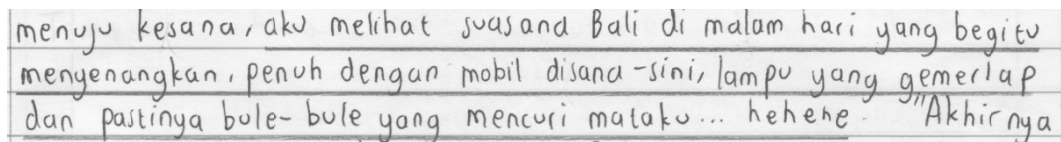 menuju kesana, aku melihat suasana Bali di malam hari yang begitu
menyenangkan, penuh dengan mobil disana-sini, lampu yang gemerlap
dan pastinya bule-bule yang mencuri mataku... hehehe. "Akhirnya